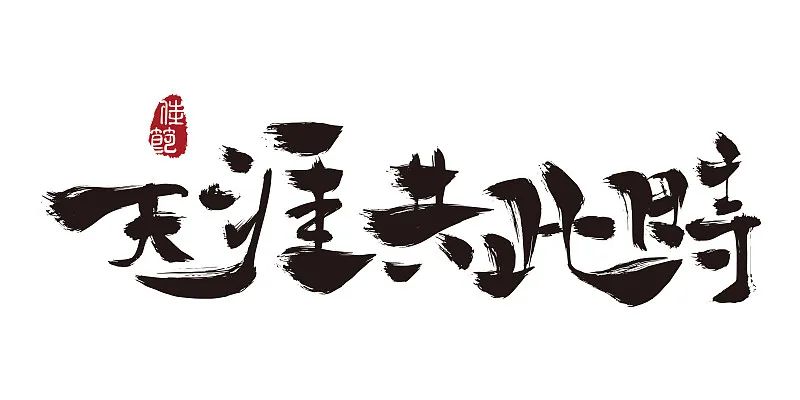 佳節
天涯共此時